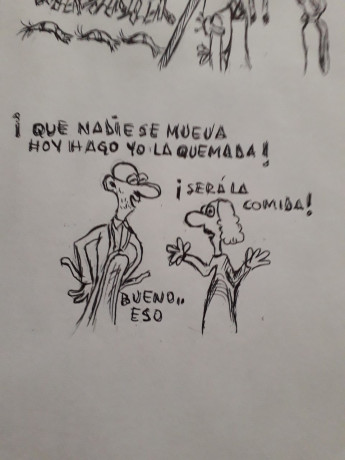 ¡ QUE NADIE SE MUEVA
HOY HAGO YO LA QUEMADA!
¡ SERÁ LA
COMIDA!
BUENO..
ESO